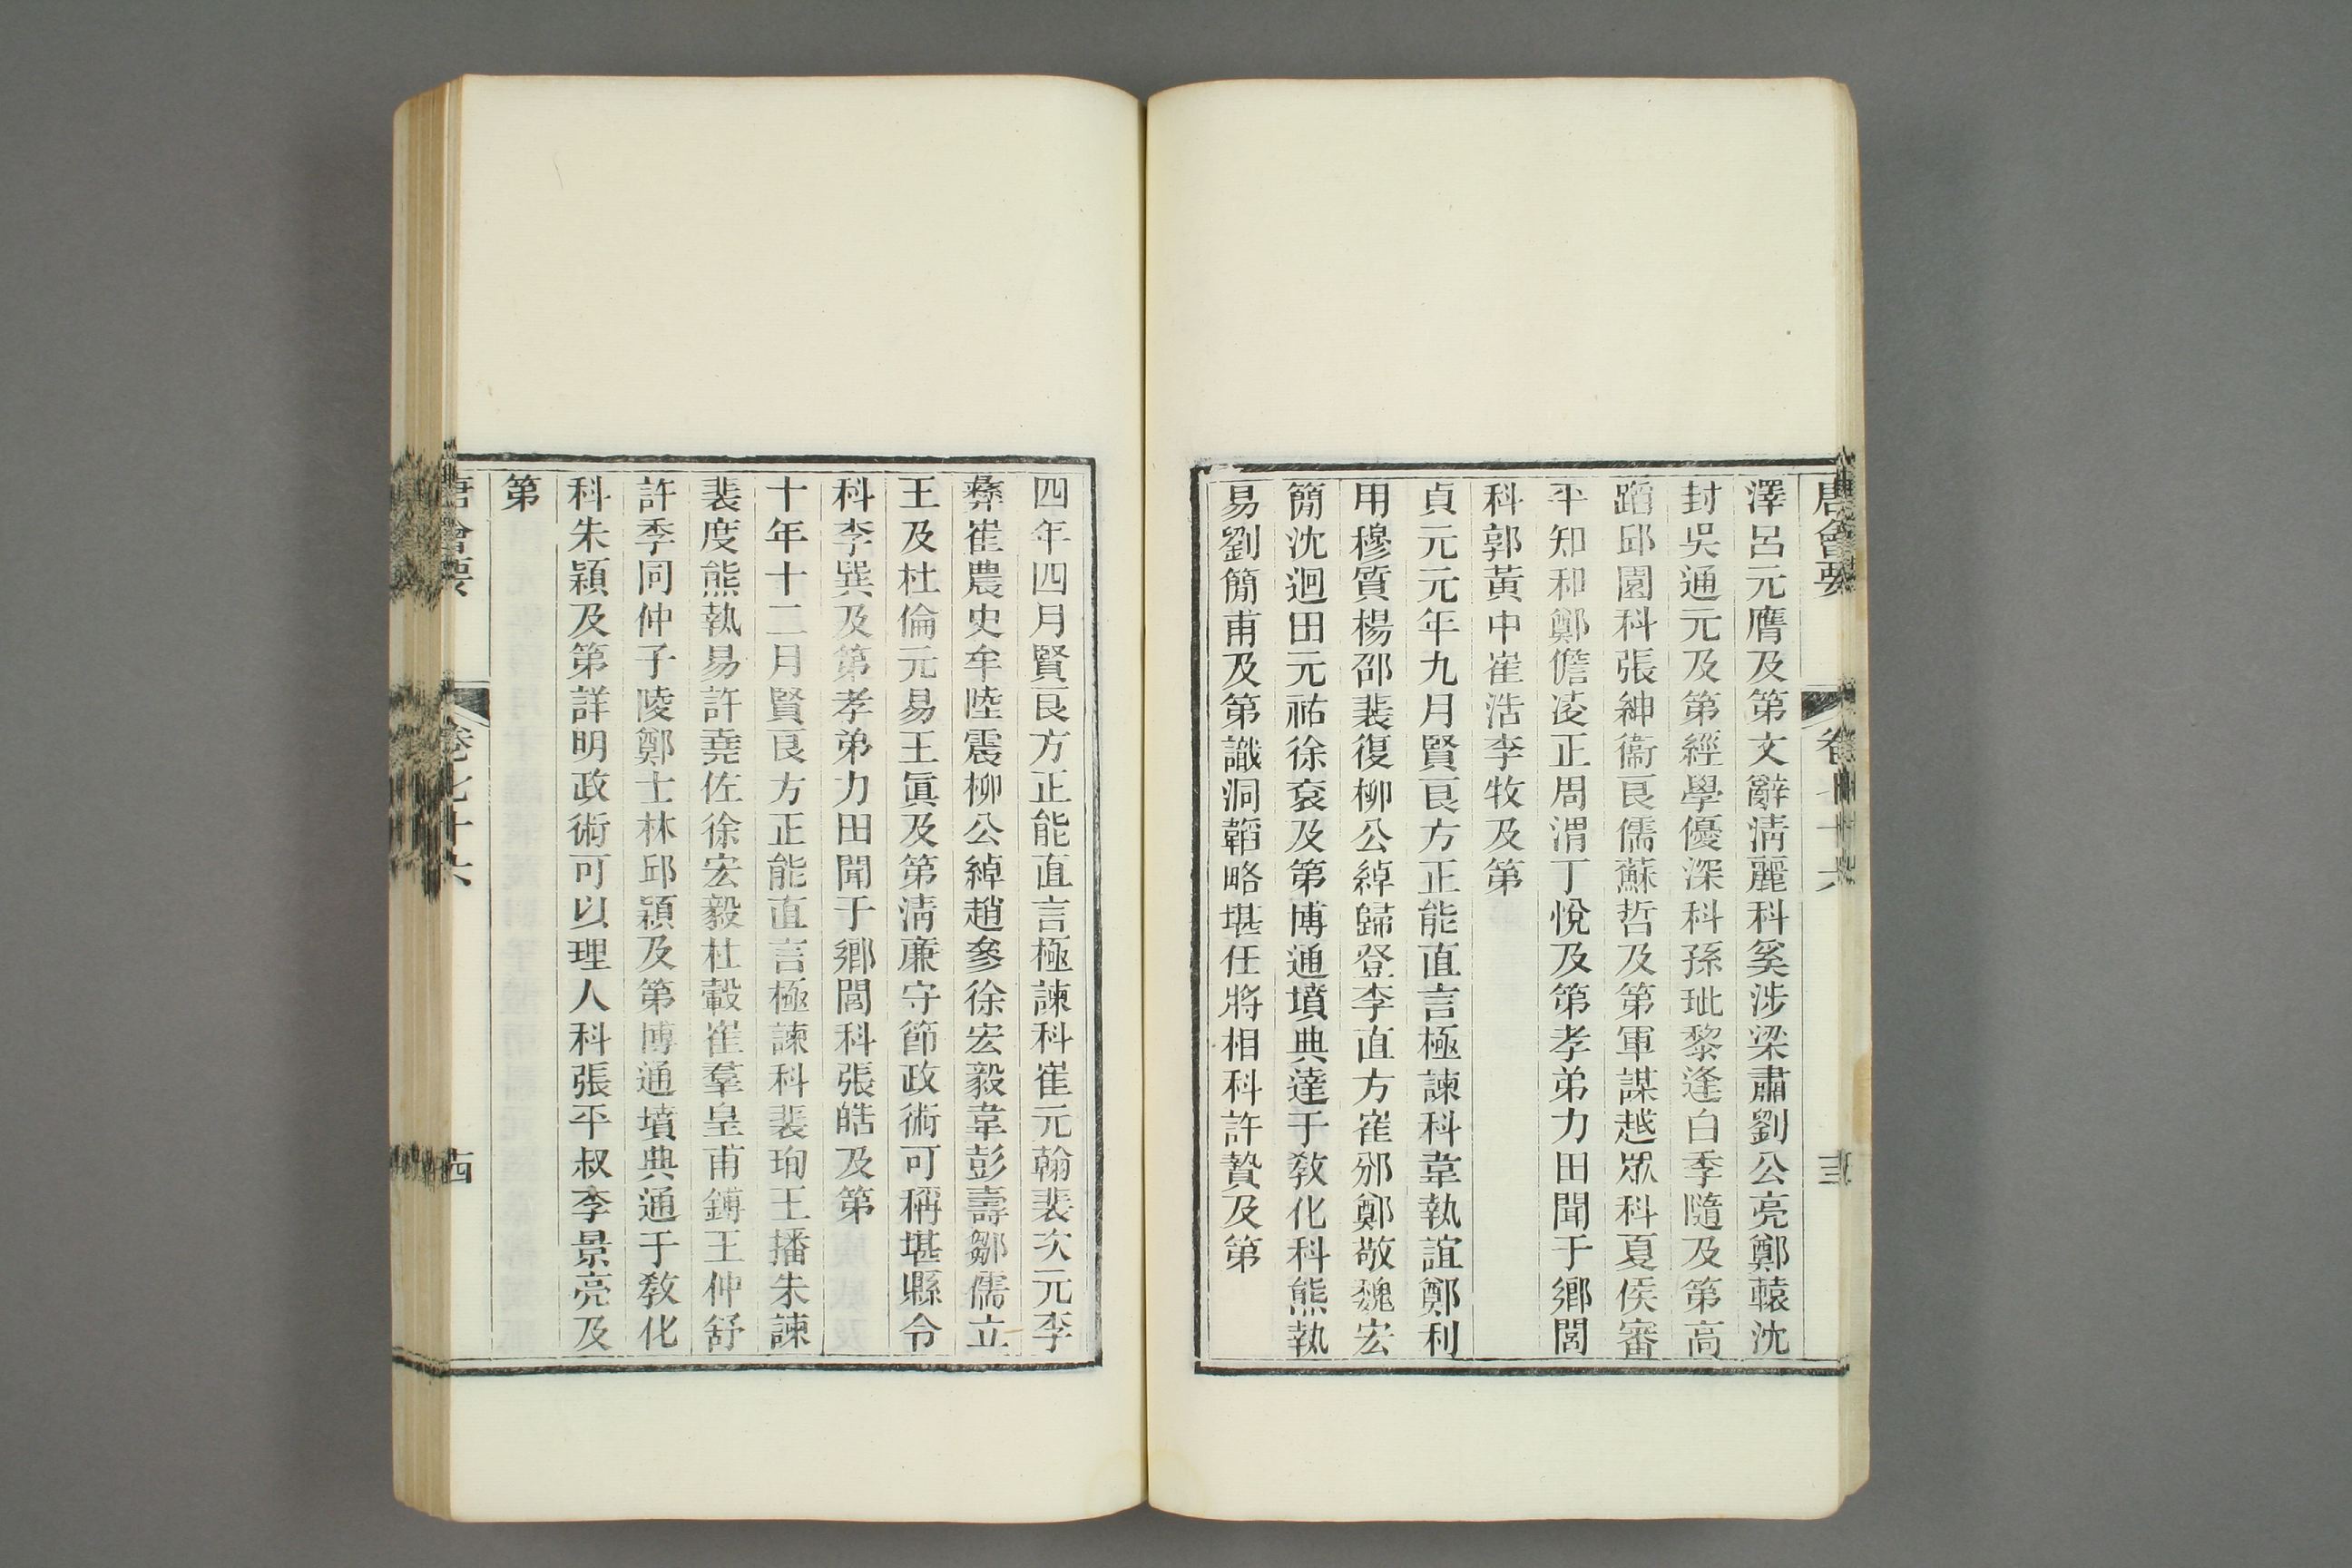 唐會要 卷七十六
澤呂元膺及第文辭淸麗科奚涉梁肅劉公亮鄭轅沈
封吳通元及第經學優深科孫玼黎逢白季隨及第高
蹈邱園科張紳衞良儒蘇哲及第軍謀越眾科夏侯審
平知和鄭儋凌正周渭丁悅及第孝弟力田聞于鄉閭
科郭黃中崔浩李牧及第
貞元元年九月賢良方正能直言極諫科韋執誼鄭利
用穆質楊邵裴復柳公綽歸登李直方崔邠鄭敬魏宏
簡沈迴田元祐徐袞及第博通墳典達于敎化科熊執
易劉簡甫及第識洞韜略堪任將相科許贄及第
四年四月賢良方正能直言極諫科崔元翰裴次元李
彝崔農史牟陸震柳公綽趙參徐宏毅韋彭壽鄒儒立
王及杜倫元易王眞及第淸廉守節政術可稱堪縣令
科李巽及第孝弟力田聞于鄉閭科張皓及第
十年十二月賢良方正能直言極諫科裴珣王播朱諫
裴度熊執易許堯佐徐宏毅杜轂崔羣皇甫鎛王仲舒
許季同仲子陵鄭士林邱穎及第博通墳典通于敎化
科朱穎及第詳明政術可以理人科張平叔李景亮及
第
唐會要 卷七十六